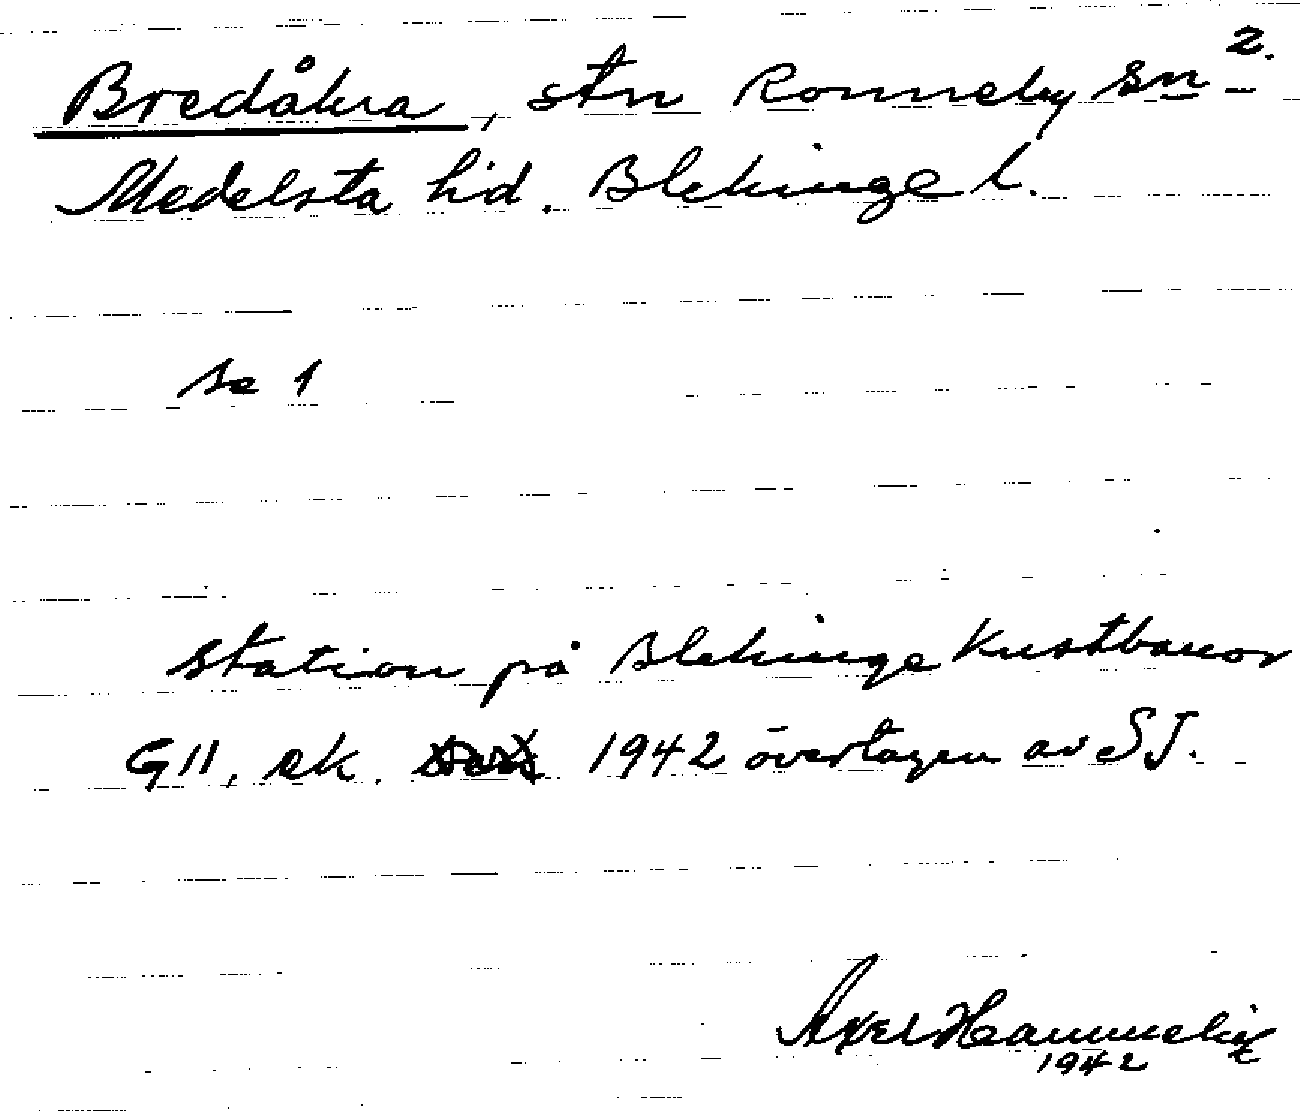 2.
Bredåkra, stn Ronneby sn
Medelsta hd. Blekinge l.
se 1
Station på Blekinge Kustbanor
GII, ek. 1942 övertagen av SJ.
Axel
1942